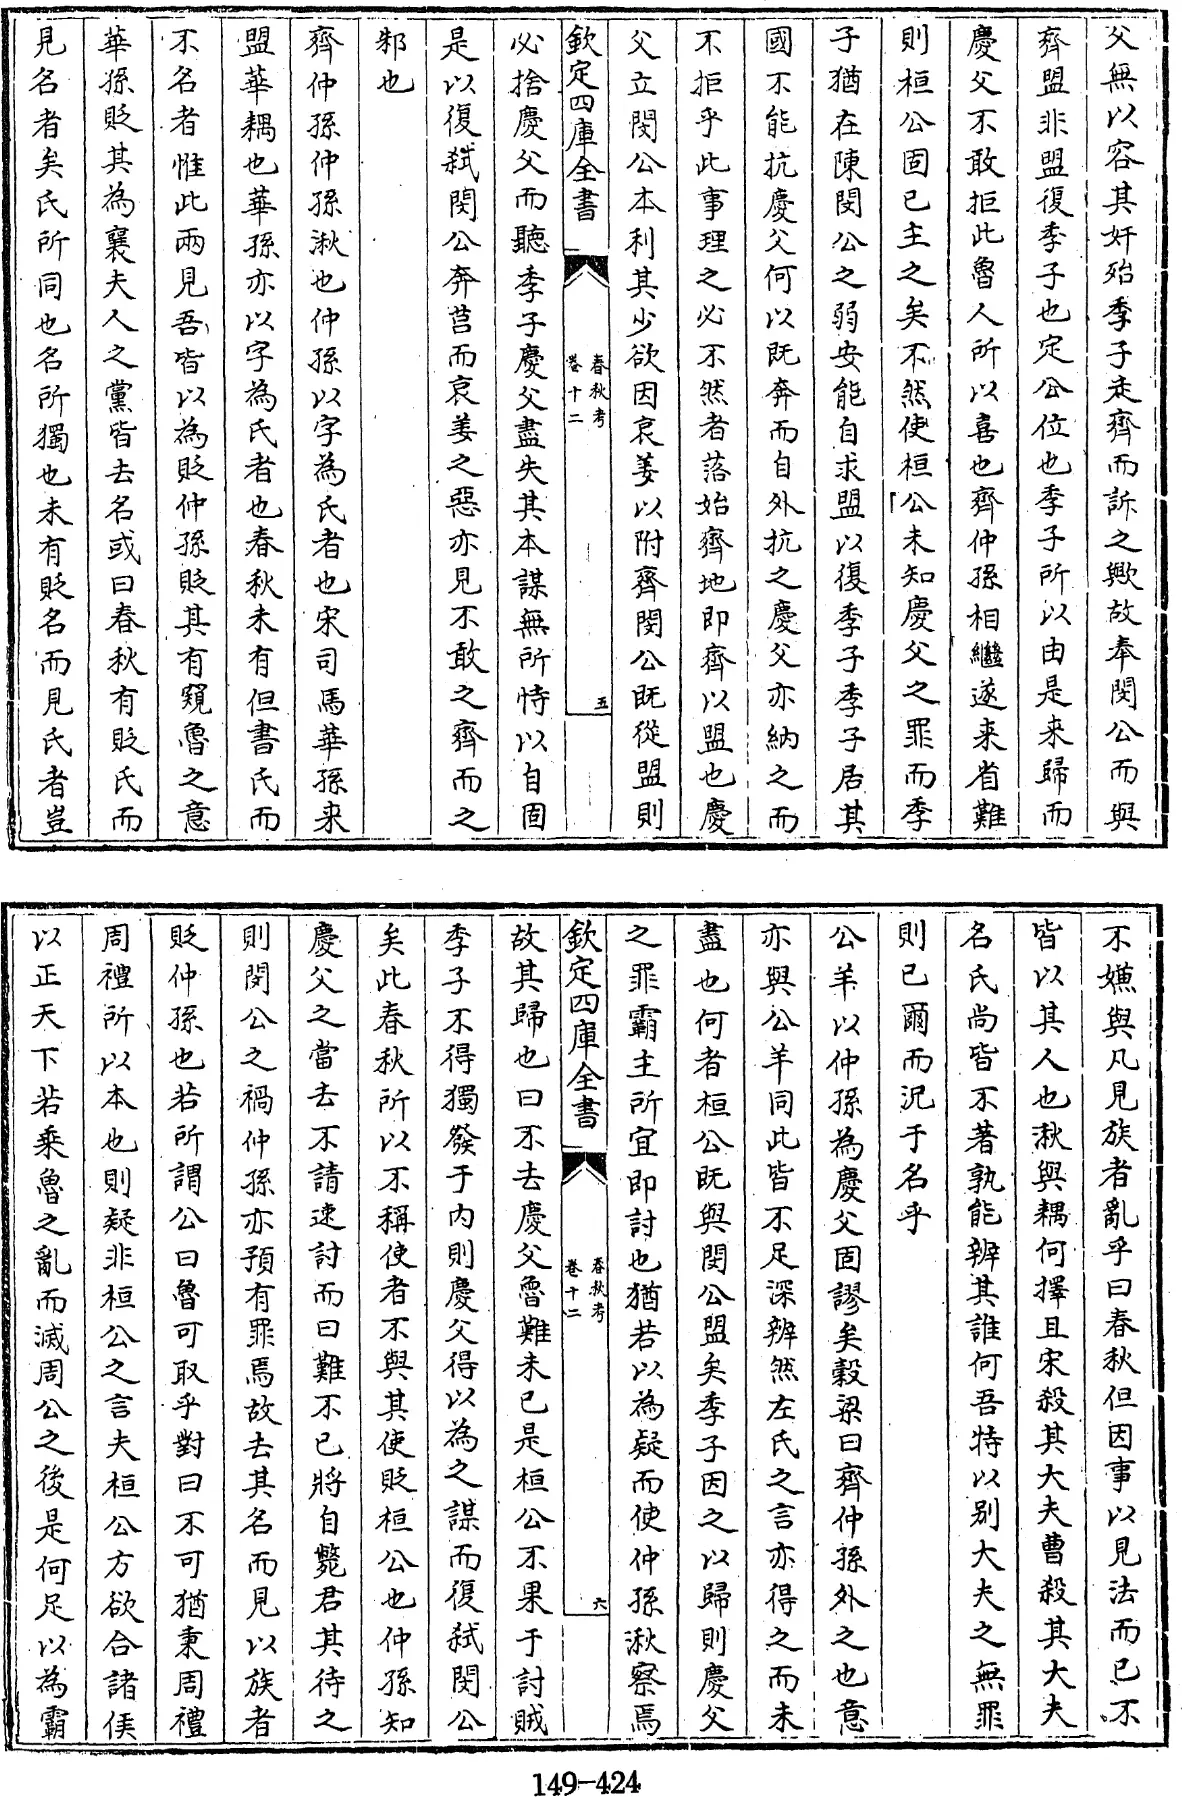 父無以容其奸殆季子走齊而訴之歟故奉閔公而與
齊盟非盟復季子也定公位也季子所以由是来歸而
慶父不敢拒此魯人所以喜也齊仲孫相繼遂来省難
則桓公固已主之矣不然使桓公未知慶父之罪而季
子猶在陳閔公之弱安能自求盟以復季子季子居其
國不能抗慶父何以既奔而自外抗之慶父亦納之而
不拒乎此事理之必不然者落始齊地即齊以盟也慶
父立閔公本利其少欲因哀姜以附齊閔公既從盟則
欽定四庫全書
春秋考
卷十二
五
必捨慶父而聽季子慶父盡失其本謀無所恃以自固
是以復弑閔公奔莒而哀姜之惡亦見不敢之齊而之
邾也
齊仲孫仲孫湫也仲孫以字為氏者也宋司馬華孫来
盟華耦也華孫亦以字為氏者也春秋未有但書氏而
不名者惟此兩見吾皆以為貶仲孫貶其有窺魯之意
華孫貶其為襄夫人之黨皆去名或曰春秋有貶氏而
見名者矣氏所同也名所獨也未有貶名而見氏者豈
不嫌與凡見族者亂乎曰春秋但因事以見法而已不
皆以其人也湫與耦何擇且宋殺其大夫曹殺其大夫
名氏尚皆不著孰能辨其誰何吾特以别大夫之無罪
則已爾而況于名乎
公羊以仲孫為慶父固謬矣穀梁曰齊仲孫外之也意
亦與公羊同此皆不足深辨然左氏之言亦得之而未
盡也何者桓公既與閔公盟矣季子因之以歸則慶父
之罪霸主所宜即討也猶若以為疑而使仲孫湫察焉
欽定四庫全書
春秋考
卷十二
六
故其歸也曰不去慶父魯難未已是桓公不果于討賊
季子不得獨發于内則慶父得以為之謀而復弑閔公
矣此春秋所以不稱使者不與其使貶桓公也仲孫知
慶父之當去不請速討而曰難不已將自斃君其待之
則閔公之禍仲孫亦預有罪焉故去其名而見以族者
貶仲孫也若所謂公曰魯可取乎對曰不可猶秉周禮
周禮所以本也則疑非桓公之言夫桓公方欲合諸侯
以正天下若乘魯之亂而滅周公之後是何足以為霸
149-424